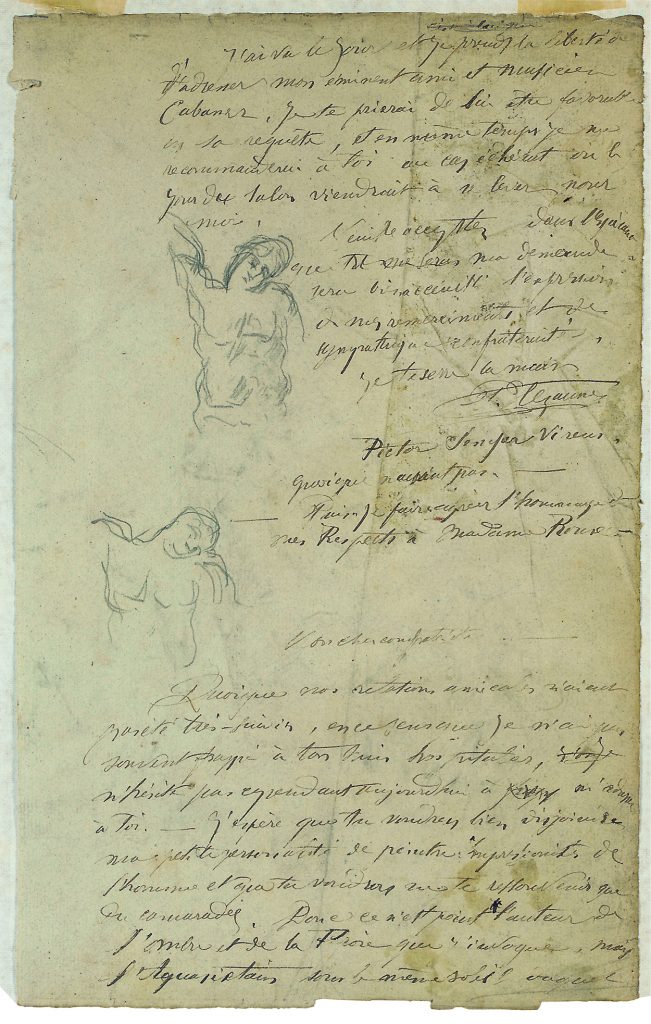 J'ai vu le jour et je prends la liberté de
t'adresser mon éminent ami et musicien
Cabaner. Je te prierai de lui être favorable
en sa requête, et en même temps je me
recommanderai à toi au cas échéant où le
jour du Salon viendrait à se lever pour
moi.
Veuille accepter dans l'espérance
que tu ma demande
sera bien accueillie l'expression
de mes remerciements et de
sympathique confraternité.
Je te serre la main
Pictor Semper Virens.
quoique n'ayant pas
Puis-je faire agréer l'hommage de
mes Respects à Madame Roux
Mon cher compatriote
Quoique nos relations amicales n'aient
pas été très-suivies, en ce sens que je n'ai pas
souvent frappé à ton huis hospitalier, je
n'hésite pas cependant aujourd'hui à m'adresser
à toi. — J'espère que tu voudras bien disjoindre
ma petite personnalité de peintre impressioniste de
l'homme et que tu voudras ne te ressouvenir que
du camarade. Donc ce n'est point l'auteur de
l'Ombre et de la Proie que j'invoque, mais
l'Aquasixtain sous le même soleil duquel